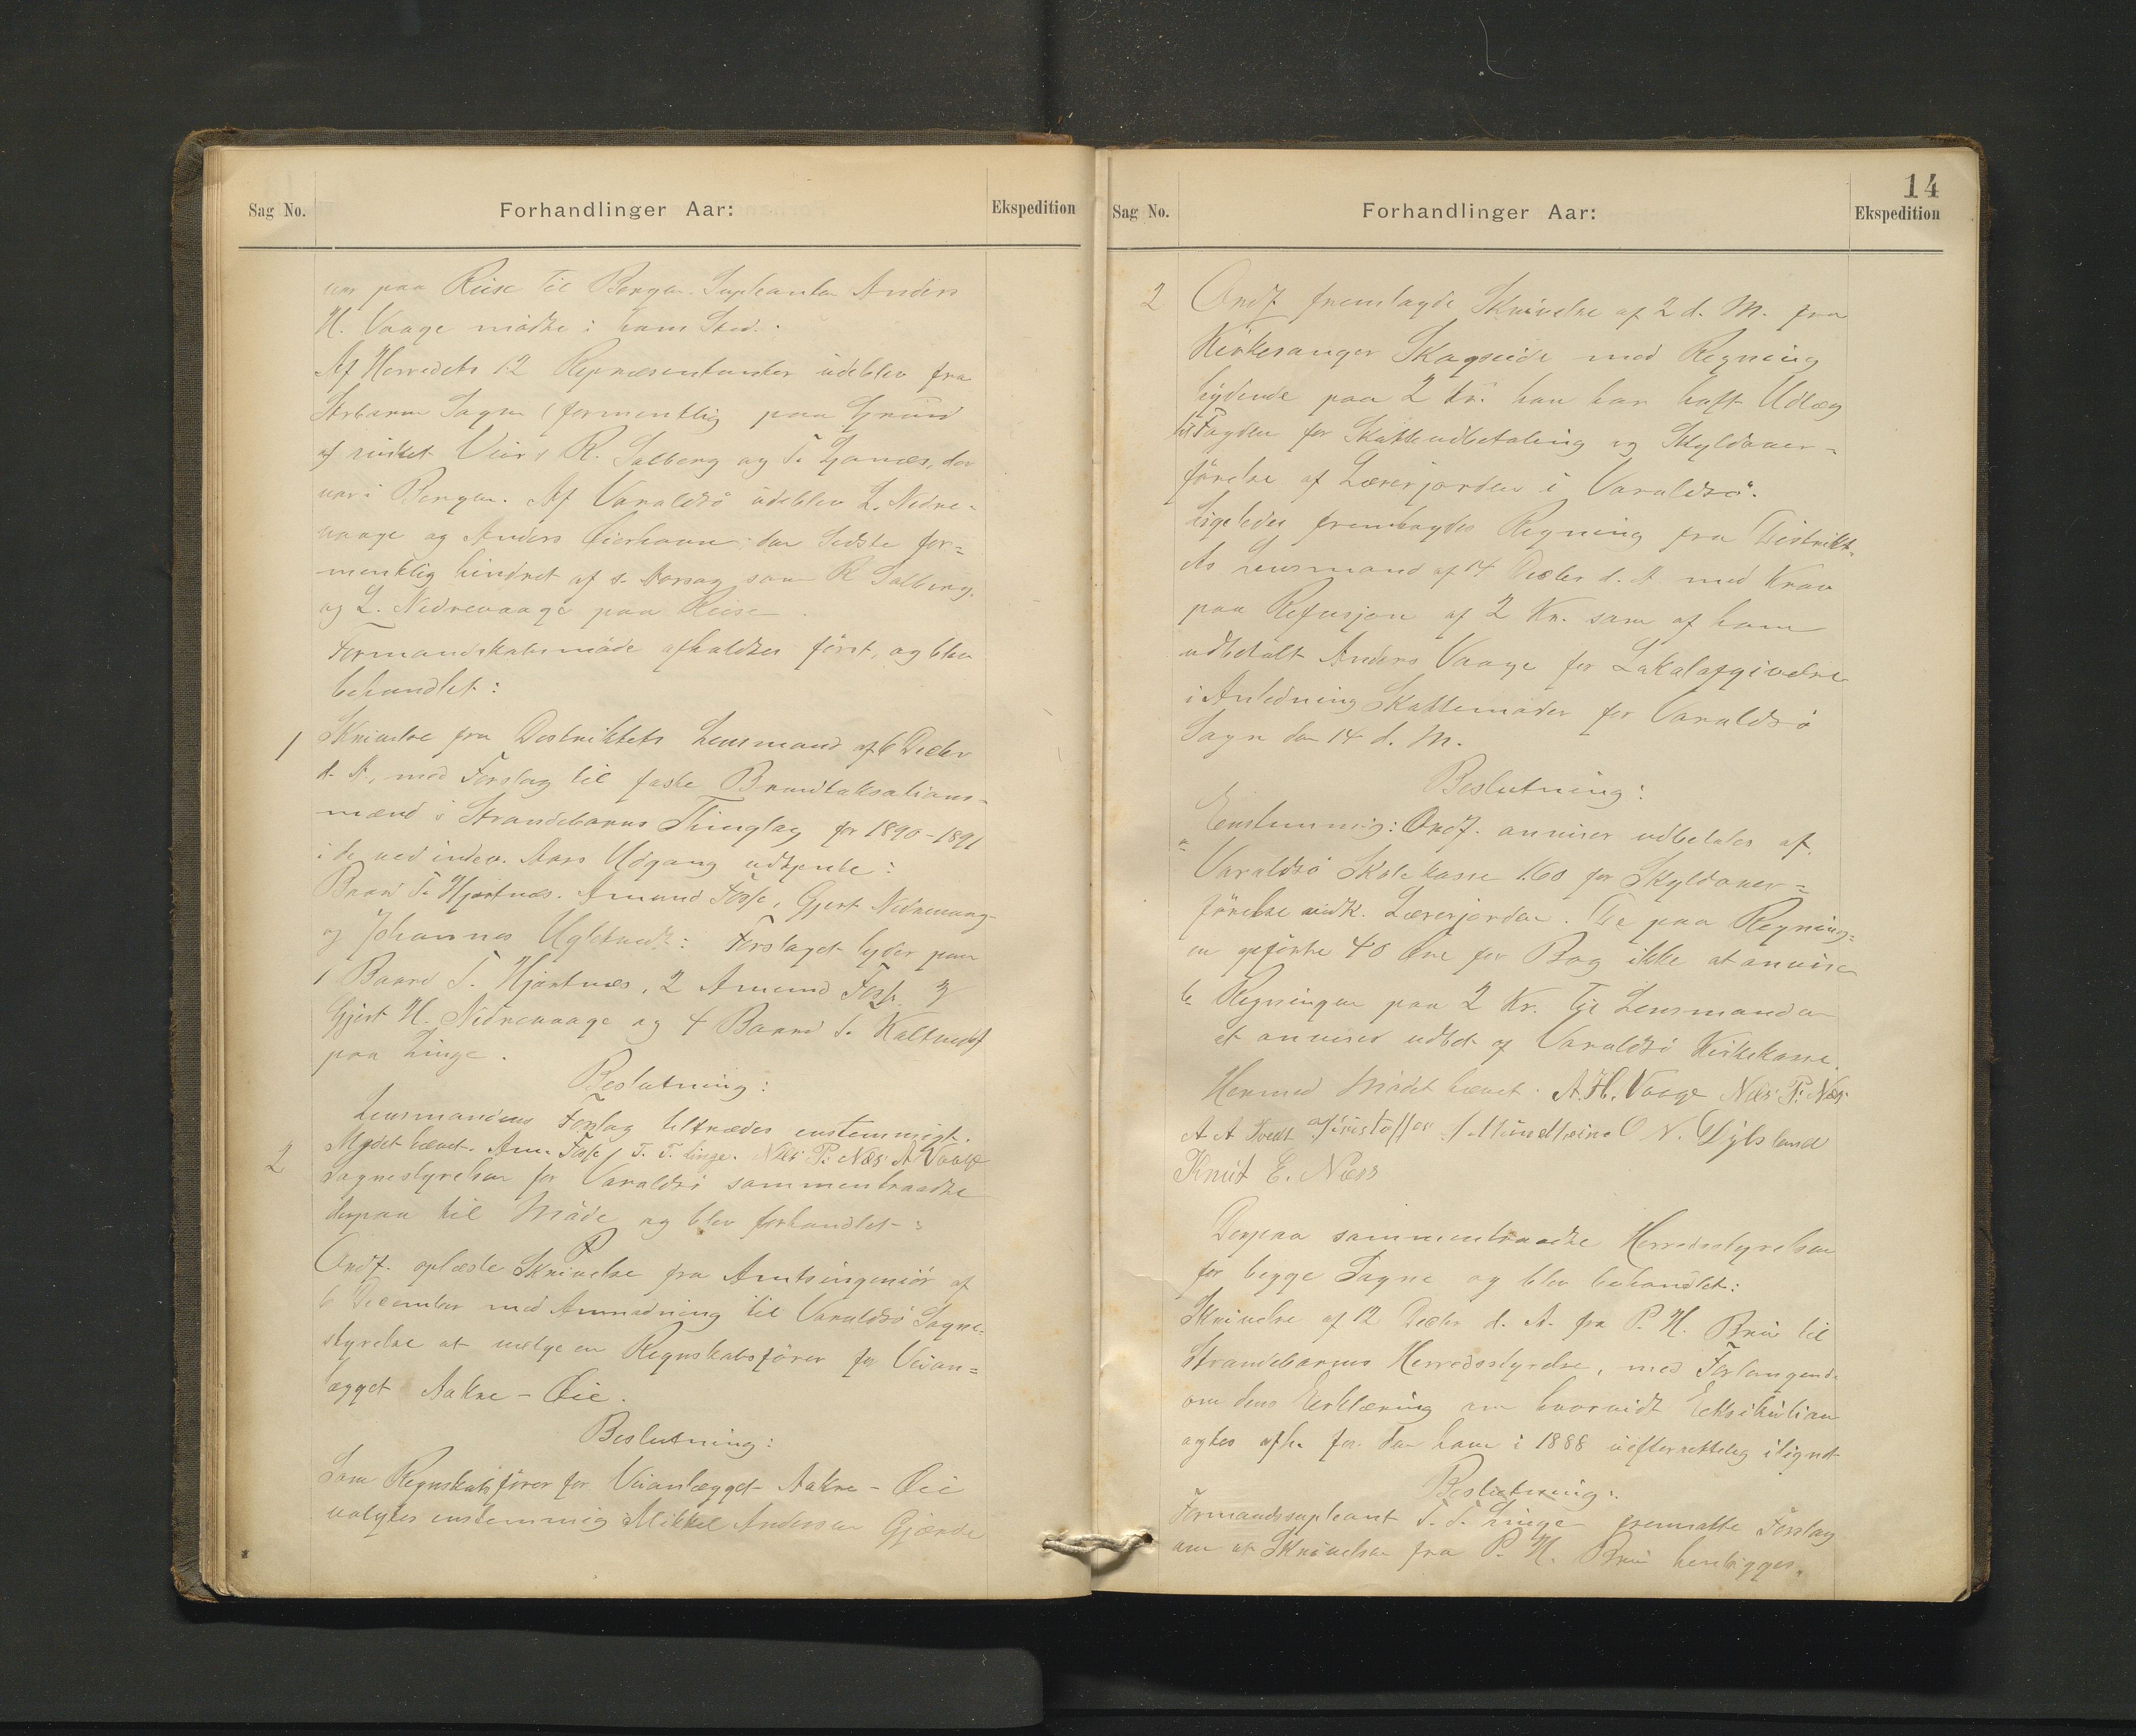 Sag No.
Forhandlinger Aar:
Ekspedition
var paa Reise til Bergen. Supleanten Anders
H. Vaage mødte i hans Sted.
Af Herredets 12 Repræsentanter udeblev fra
Strbarm Sogn (formentlig paa Grund
af Veir) R. Solberg og T. der
var i Bergen. Af Varaldsö udeblev L. Nedre-
vaage og Anders den Sidste for=
mentlig hindret af s. Aarsag som R. Solberg.
og L. Nedrevaage paa Reise.
Formandskabsmöde afholdtes först, og blev
behandlet:
1 Skrivelse fra Destriktets Lensmand af 6 Decbr
d. A, med Forslag til faste Brandtaksations-
mænd i Strandebarms Thinglag for 1890-1891
i de ved indev. Aars Udgang udtjente:
Baard T. Hjartnæs. Amund Fosse, Gjert Nedrevaag-
og Johannes Forslaget lyder paa
1 Baard T. Hjartnæs, 2 Amund Fosse 3
Gjert H. Nedrevaage og 4 Baard T.
paa Linge.
Beslutning:
Lensmandens Forslag tiltrædes enstemmigt.
Mødet hævet. Am. Fosse T. T. Linge. Nils P. Næs A Vaage
2 Sognestyrelsen for Varaldsö sammentraadte
derpaa til Möde og blev forhandlet:
Ordf. oplæste Skrivelse fra Amtsingeniör af
6 December med Anmodning til Varaldsö Sogne-
styrelse at vælge en Regnskabsförer for Veian=
lægget Aakre - Öie.
Beslutning:
Som Regnskabsförer for Veianlægget Aakre - Öie
valgtes enstemmig Mikkel Andersen Gjerde
14
Sag No.
Forhandlinger Aar:
Ekspedition
2 Ordf fremlagde Skrivelse af 2 d. M. fra
Kirkesanger Skogseide med Regning
lydende paa 2 Kr. han har haft Udlæg
til Fogden for Skatteudbetaling og Skyldover-
förelse af Lærerjorden i Varaldsö.
Ligeledes fremlagdes Regning fra Distrikt-
ets Lensmand af 14 Decbr d. A. med Krav
paa Refusjon af 2 Kr. som af ham
udbetalt Anders Vaage for Lokalafgivelse
i Anledning Skattemöder for Varaldsö
Sogn den 14 d. M.
Beslutning:
Enstemmig: Ordf. anviser udbetales af
a Varaldsö Skolekasse 1.60 for Skyldover=
förelse vedk. Lærerjorden. De paa Regning=
en opförte 40 Öre for Bog ikke at anvise
b Regningen paa 2 Kr. til Lensmanden
at anvises udbet af Varaldsö Kirkekasse.
Hermed Mödet hævet. A. H. Vaage Nils P. Næs
A A Tvedt O N. Dybsland
Knut E. Næss
Derpaa sammentraadte Herredsstyrelsen
for begge Sogne og blev behandlet:
Skrivelse af 12 Decbr d. A. fra P. H. Bru til
Strandebarms Herredsstyrelse, med Forlangende
om dens Erklæring om hvorvidt Eksekution
agtes afh. for den ham i 1888 uefterrettelig ilignet
Beslutning:
Formandssupleant T. T. Linge fremsatte Forslag
om at Skrivelsen fra P. H. Bru henlægges.